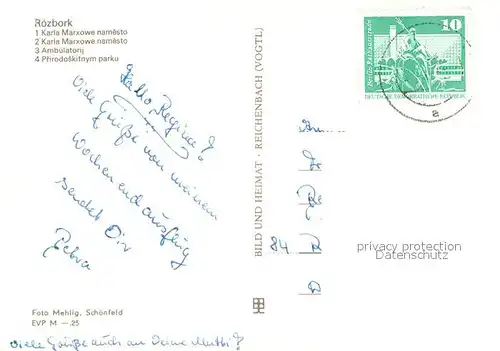 Rózbork
1 Karla Marxowe naměsto
2 Karla Marxowe naměsto
3 Ambulatorij
4 Přirodoškitnym parku
Hallo Regine!
Viele Grüße von meinem
Wochenendausflug
sendet Dir
Petra
Foto Mehlig, Schönfeld
EVP M —.25
Viele Grüße auch an Deine Mutti!
BILD UND HEIMAT · REICHENBACH (VOGTL)
10
DEUTSCHE DEMOKRATISCHE REPUBLIK
a
84
privacy protection
Datenschutz